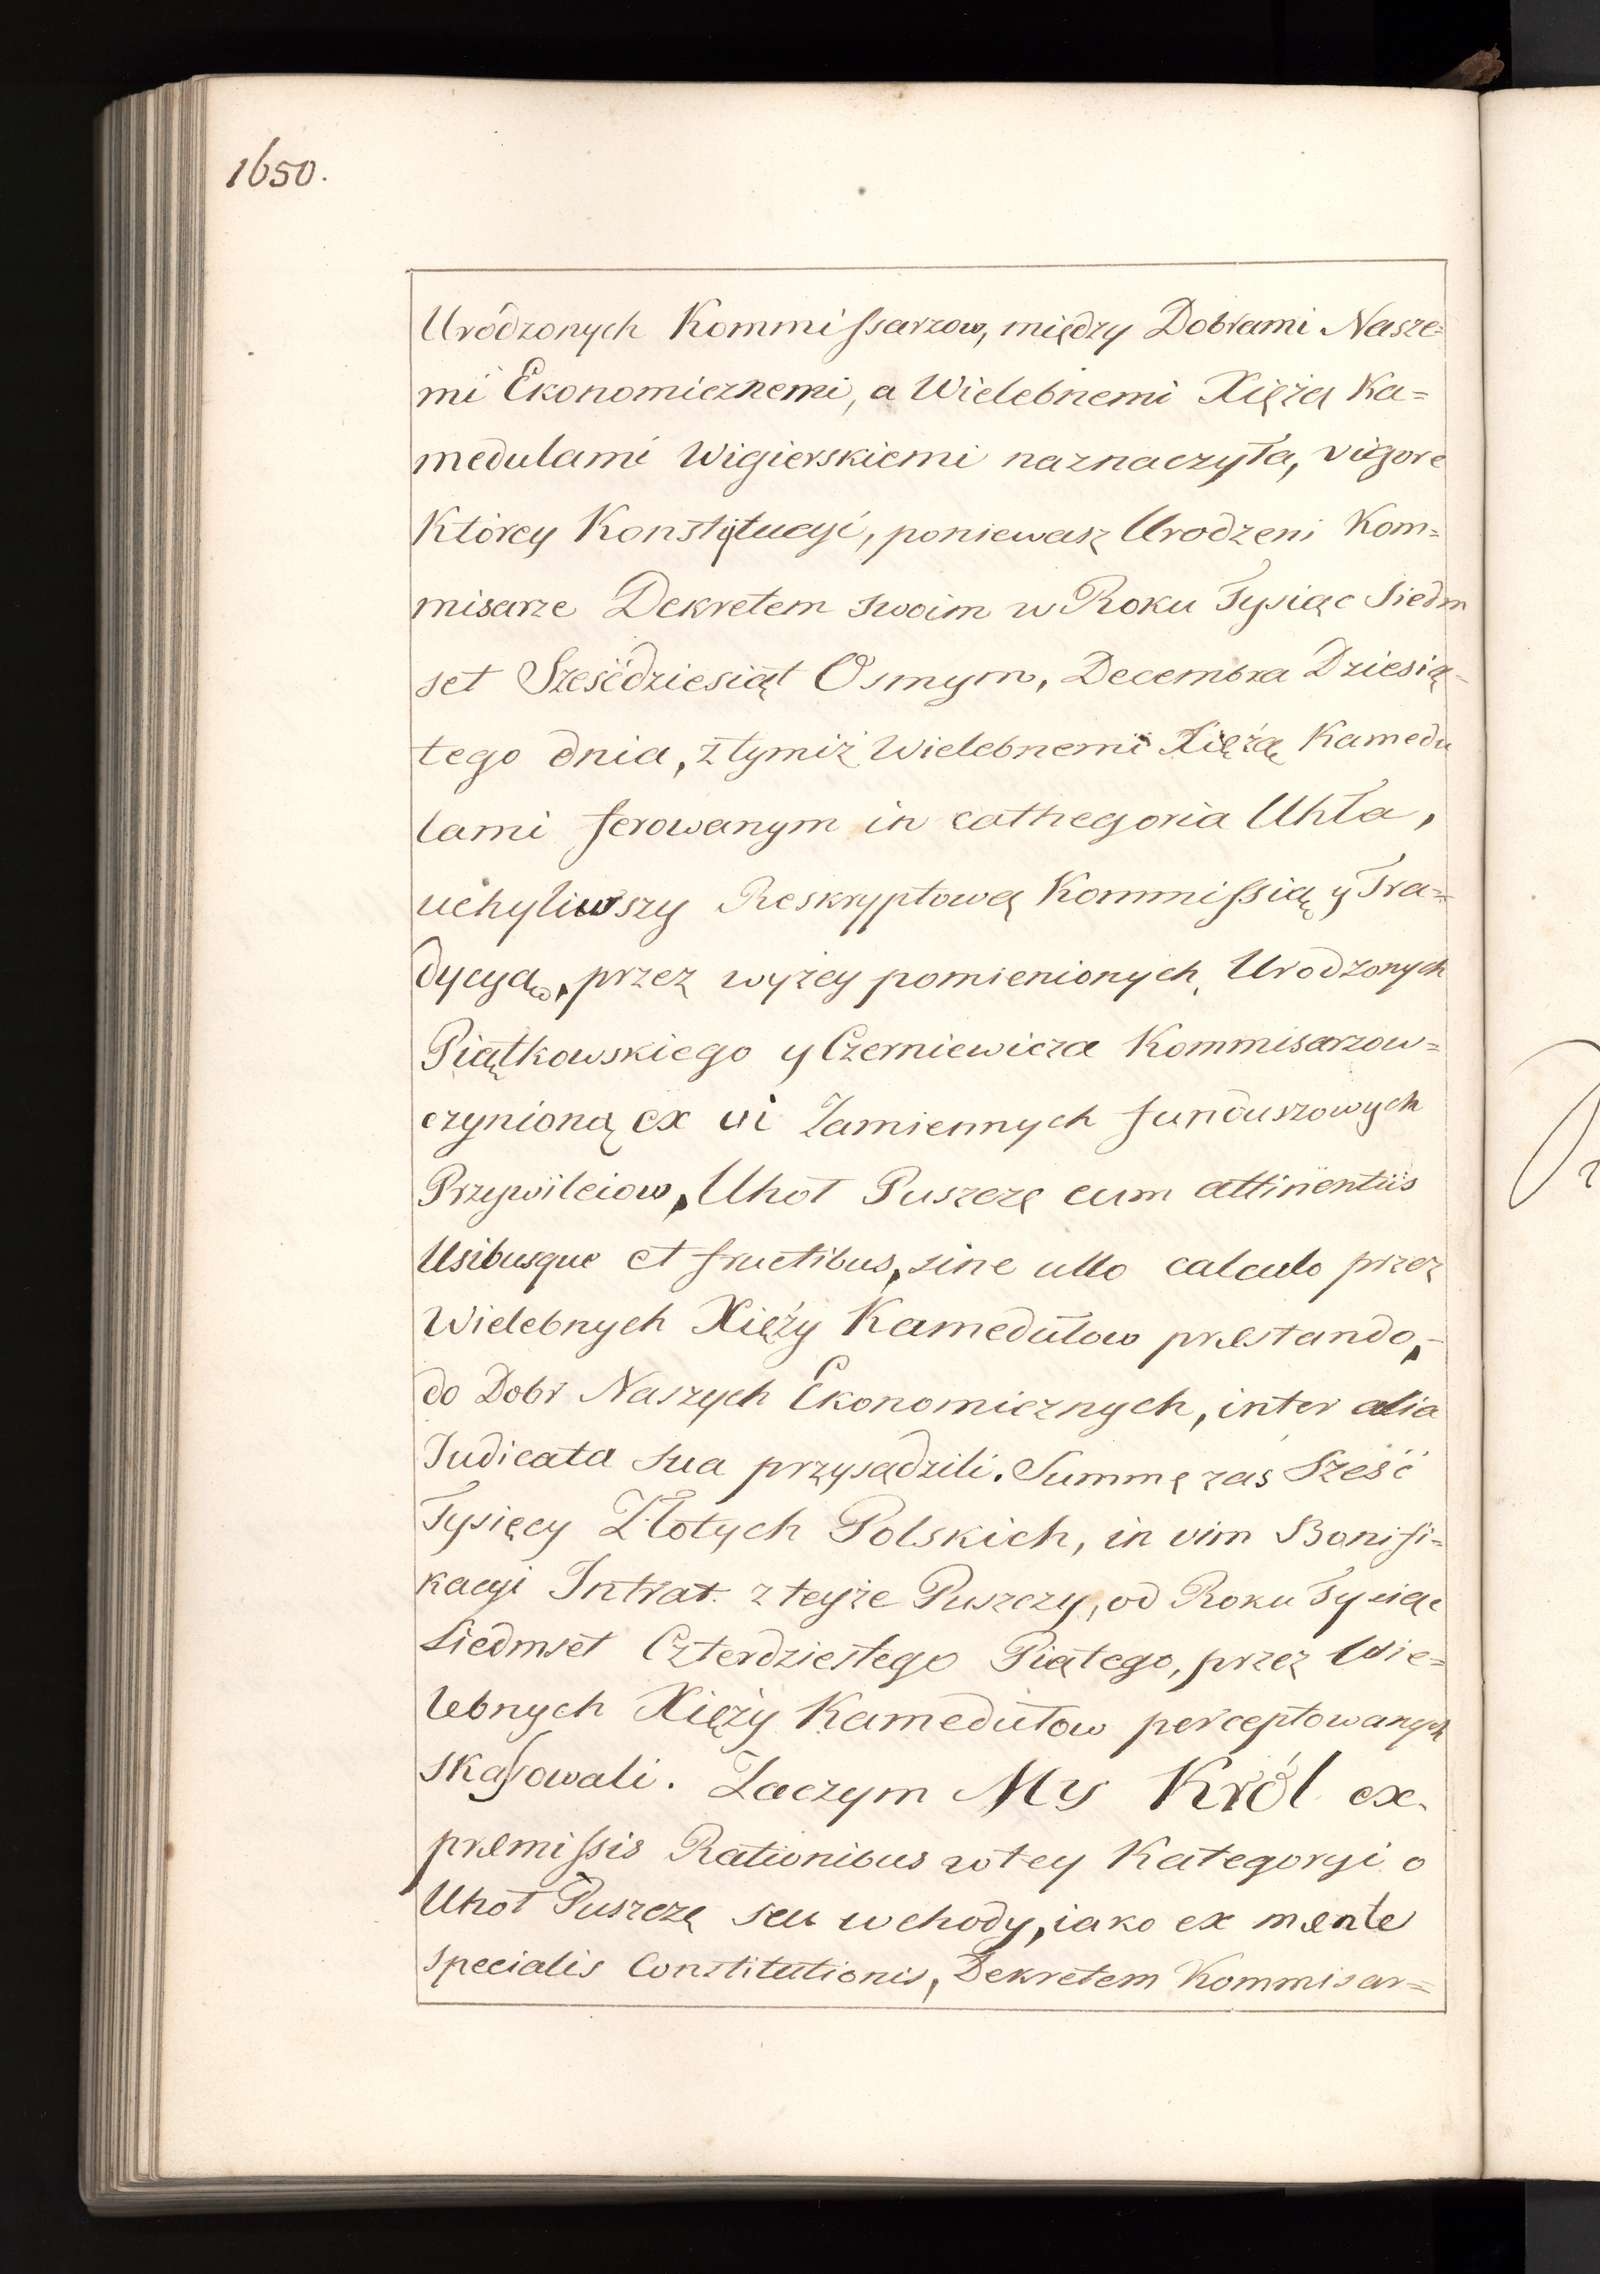 1650.
Urodzonych Kommissarzow, między Dobrami Nasze=
mi Ekonomicznemi, a Wielebnemi Xiężą Ka=
medulami Wigierskiemi naznaczyła, vigore
Którey Konstytucyi, poniewasz Urodzeni Kom=
misarze Dekretem swoim w Roku Tysiąc Siedm
set Sześćdziesiąt Osmym, Decembra Dziesią=
tego dnia, z tymiż Wielebnemi Xiężą Kamedu
lami ferowanym in cathegoria Uhła,
uchyliwszy Reskryptową Kommissią y Tra=
dycyą, przez wyżey pomienionych Urodzonych
Piątkowskiego y Czerniewicza Kommisarzow=
czynioną ex vi Zamiennych funduszowych
Przywileiow, Uhoł Puszczę cum attinentiis
Usibusque et fructibus, sine ullo calculo przez
Wielebnych Xięży Kamedułow præstando,-
do Dobr Naszych Ekonomicznych, inter alia
Judicata sua przysądzili. Summę zas Sześć
Tysięcy Złotych Polskich, in vim Bonifi=
kacyi Intrat z teyże Puszczy, od Roku Tysiąc
Siedmset Czterdziestego Piątego, przez Wie=
lebnych Xięży Kamedułow perceptowanych
skasowali. Zaczym My Król ex
præmissis Rationibus w tey Kategoryi o
Uhoł Puszczę seu wchody, iako ex mente
specialis Constitutionis, Dekretem Kommisar=